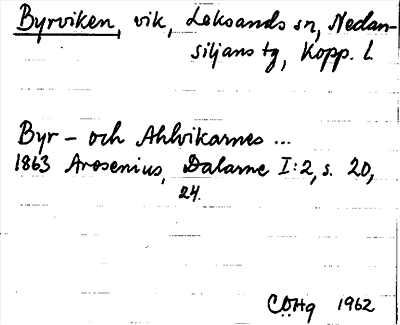 Byrviken, vik, Leksands sn, Nedan-
siljans tg, Kopp. l.
Byr- och Ahlvikarnes ...
1863 Arosenius, Dalarne I:2, s. 20,
24.
CÖHg 1962